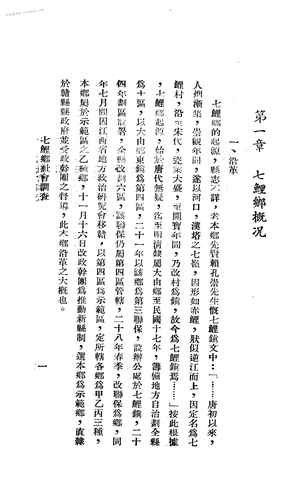 第一章　七鯉鄉概況
一、沿革
七鯉鄉的起源，縣志不詳，考本鄉先賢賴孔崇先生慨七鯉鎮文中：「……唐初以來，
人烟漸集，崇觀年間，遂以河口，漢塔之七嶺，因形如赤鯉，狀似逆江而上，因定名爲七
鯉村，沿至宋代，瓷業大盛，至開寶年間，乃改村爲鎮，故今爲七鯉鎮焉……」按此根據
，七鯉鄉起源，始於唐代無疑，迄至明清隸屬大由鄉至民國十七年，籌備地方自治劃全縣
爲十區，以大由鄉東鎮爲第四區，二十一年以該鄉爲第三聯保，設辦公處於七鯉鎮，二十
四年劃區設署，全縣改劃六區，該聯保仍屬第四區管轄，二十八年春季，改聯保爲鄉，同
年七月間因江西省地方政治研究會移贛，以第四區爲示範區，定所轄各鄉爲甲乙丙三種，
本鄉屬於示範區之乙種鄉，十一月十六日改政幹團爲推動新縣制，選本鄉爲示範鄉，直隸
於贛縣縣政府並受政幹團之督導，此本鄉沿革之大概也。
七鯉鄉社會調查
一